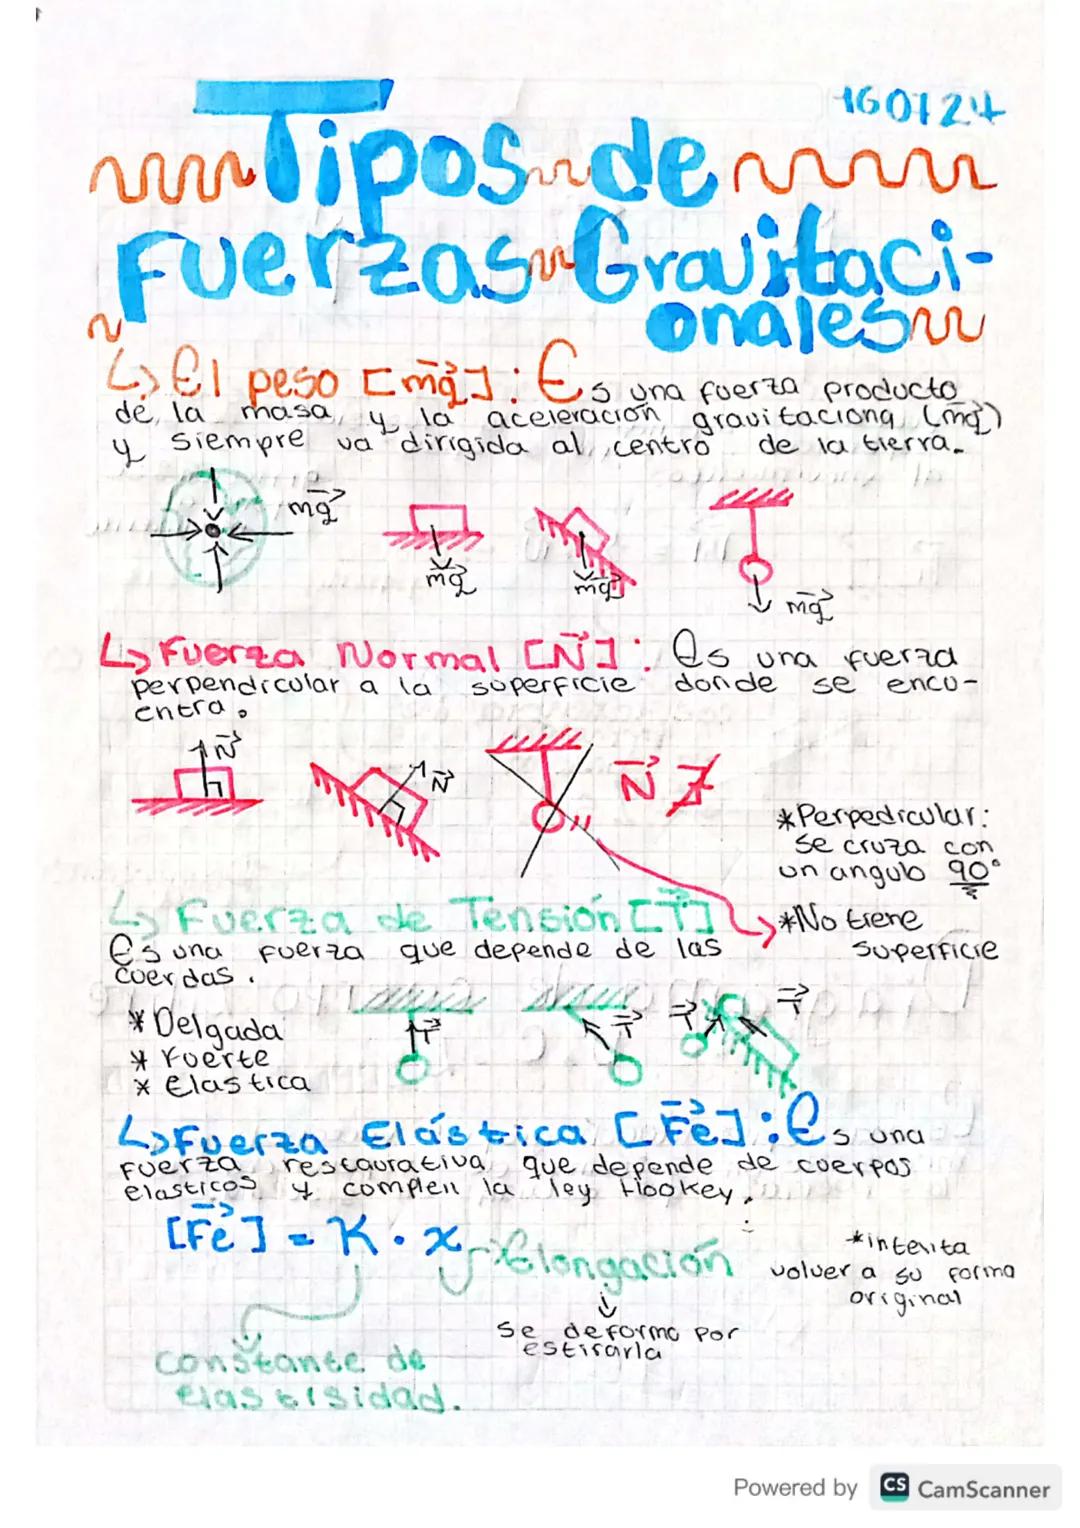 160724
Tipos de
Fuerzas Gravitaci-
onales
↳ El peso [mg]: Es una fuerza producto
de la masa y la aceleración gravitaciona (mg)
y siempre va dirigida al centro de la tierra.
mg
mg
mg
mg
↳ Fuerza Normal [N]: Es una fuerza
perpendicular a la superficie donde se encu-
entra.
N
N
N ∄
*Perpedicular:
se cruza con
un angulo 90°
↳ Fuerza de Tensión [T]
*No tiene
superficie
Es una fuerza que depende de las
cuerdas.
* Delgada
* Fuerte
* Elastica
T
T
T
T
↳ Fuerza Elástica [Fe]: Es una
fuerza restaurativa que depende de cuerpos
elasticos y complen la ley Hookey.
[Fe] = K . x
Elongación
*intenta
volver a su forma
original
se deforma por
estirarla
constante de
elastisidad.
Powered by CS CamScanner